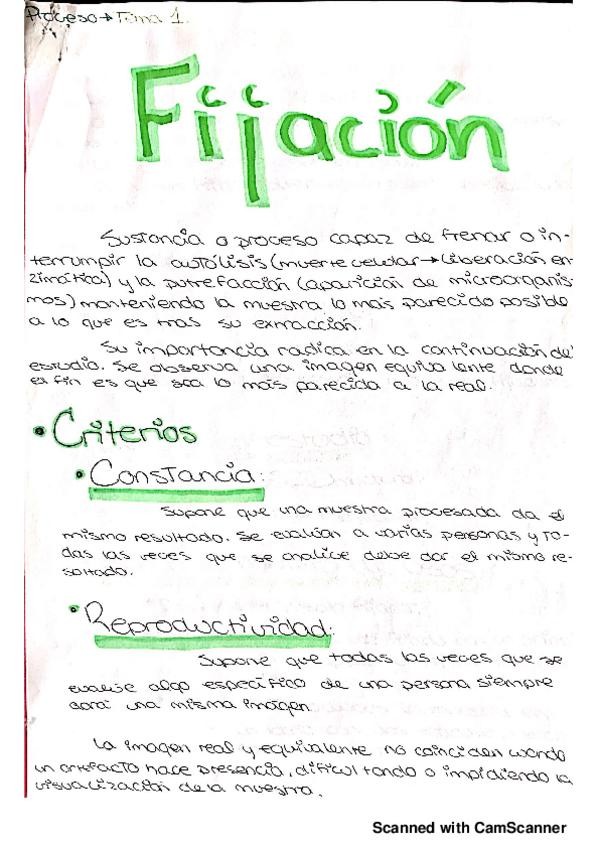 Proceso → Tema 1.
Fijación
Sustancia o proceso capaz de frenar o in-
terrumpir la autólisis (muerte celular → Liberación en-
zimática) y la putrefacción (aparición de microorganis-
mos) manteniendo la muestra lo más parecido posible
a lo que es tras su extracción.
Su importancia radica en la continuación del
estudio. Se observa una imagen equivalente donde
el fin es que sea lo más parecida a la real.
• Criterios
• Constancia:
Supone que una muestra procesada da el
mismo resultado. Se evalúan a varias personas y to-
das las veces que se analice debe dar el mismo re-
sultado.
• Reproductividad:
Supone que todas las veces que se
evalúe algo específico de una persona siempre
dará una misma imagen.
La imagen real y equivalente no coinciden cuando
un artefacto hace presencia, dificultando o impidiendo la
visualización de la muestra.
Scanned with CamScanner